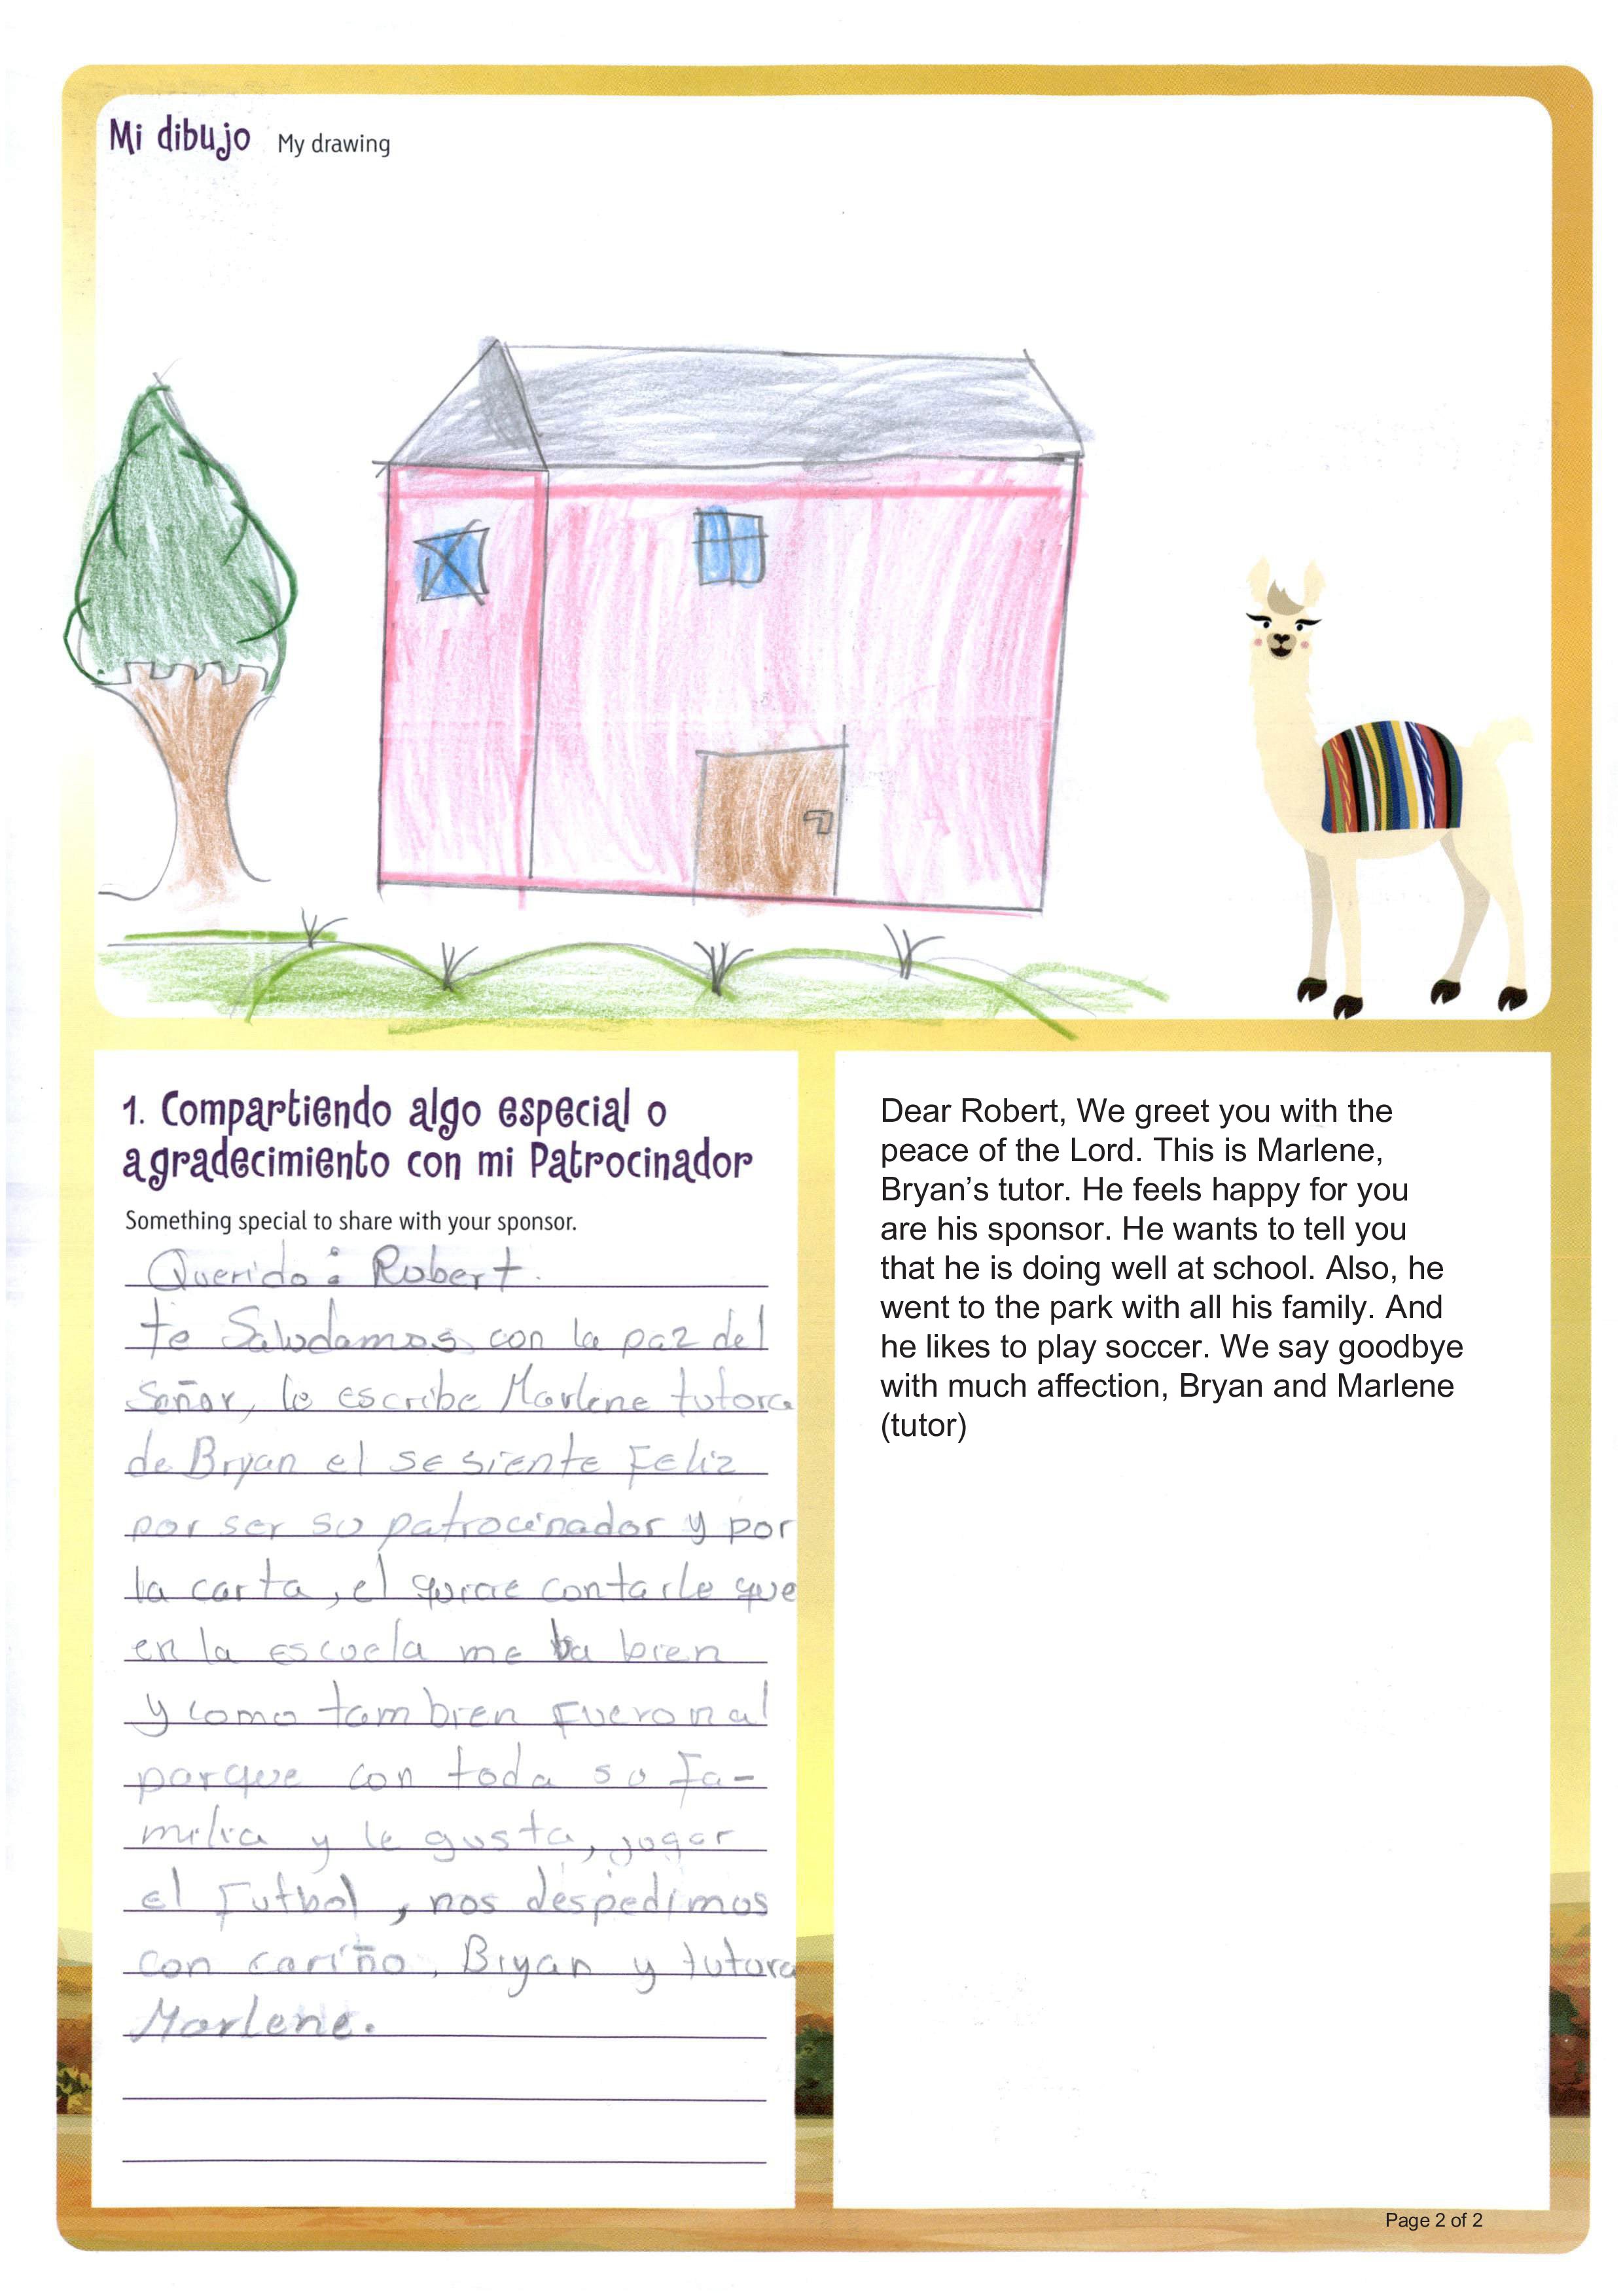 Mi dibujo My drawing
1. Compartiendo algo especial o
agradecimiento con mi Patrocinador
Something special to share with your sponsor.
Querido : Robert.
te Saludamos con la paz del
Señor, le escribe Marlene tutora
de Bryan el se siente Feliz
por ser su patrocinador y por
la carta, el quiere contarle que
en la escuela me ba bien
y como tambien Fueron al
parque con toda su Fa-
milia y le gusta, jugar
el Futbol, nos despedimos
con cariño, Bryan y tutora
Marlene.
Dear Robert, We greet you with the
peace of the Lord. This is Marlene,
Bryan’s tutor. He feels happy for you
are his sponsor. He wants to tell you
that he is doing well at school. Also, he
went to the park with all his family. And
he likes to play soccer. We say goodbye
with much affection, Bryan and Marlene
(tutor)
Page 2 of 2